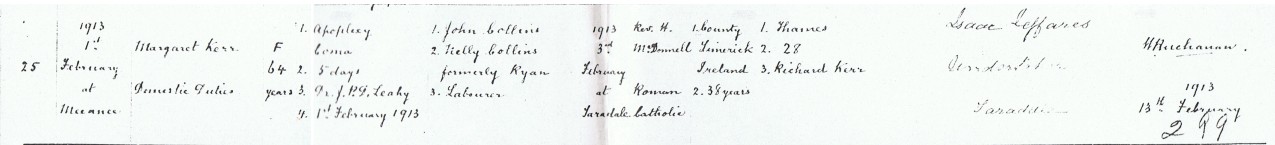 1913 1. Apoplexy 1. John Collins 1913 Rev. H. 1. County 1. Thames Isaac Jeffares
1st Margaret Kerr. F Coma 2. Nelly Collins 3rd McDonnell Limerick 2. 28 H Buchanan.
25 February 64 2. 5 days formerly Ryan February Ireland 3. Richard Kerr Undertaker
at Domestic Duties years 3. Dr. J.P.D. Leahy 3. Labourer at Roman 2. 38 years 1913
Meeanee 4. 1st February 1913 Taradale Catholic Taradale 13th February
299